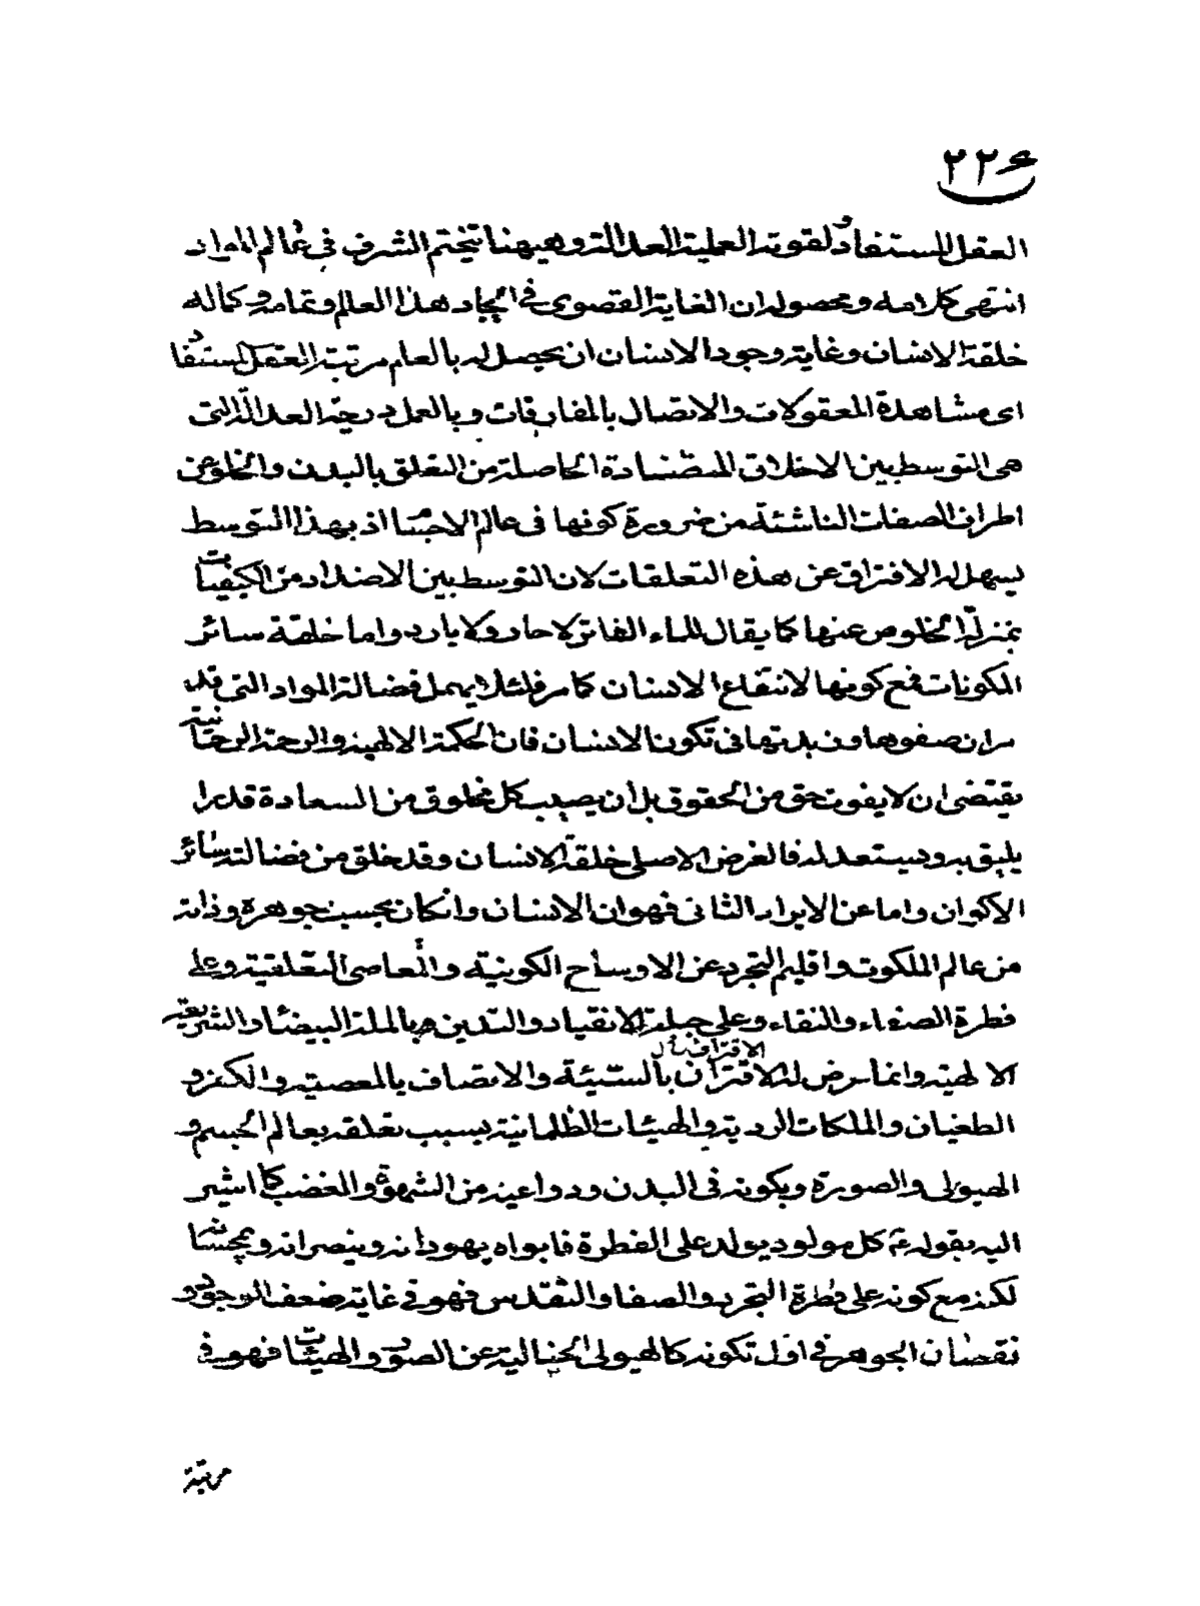 ٢٢٤
العقل المستفاد ولقوته العملية العدالة وهيهنا يختم الشرف في عالم المواد
انتهى كلامه ومحصوله ان الغاية القصوى في ايجاد هذا العالم وتمامه وكماله
خلقة الانسان وغاية وجود الانسان ان يحصل له بالعلم مرتبة العقل المستفاد
اى مشاهدة المعقولات والاتصال بالمفارقات وبالعمل درجة العدالة التى
هى التوسط بين الاخلاق المتضادة الحاصلة من التعلق بالبدن والخلو عن
اطراف الصفات الناشئة من ضرورة كونها فى عالم الاجسا اذ بهذا التوسط
يسهل له الافتراق عن هذه التعلقات لان التوسط بين الاضداد من الكيفيات
بمنزلة الخلوص عنها كما يقال للماء الفاتر لا حار ولا بارد واما خلقة سائر
المكونات فمع كونها لانتفاع الانسان كما مر فلئلا يهمل فضالة المواد التى قد
صفوها وزبدتها فى تكون الانسان فان الحكمة الالهية والرحمة الرحمانية
يقتضى ان لا يفوت حق من الحقوق بل ان يصيب كل مخلوق من السعادة قدرا
يليق به ويستعد له فالغرض الاصلى خلقة الانسان وقد خلق من فضالته سائر
الاكوان واما عن الايراد الثانى فهو ان الانسان وان كان بحسب جوهره وذاته
من عالم الملكوت واقليم التجرد عن الاوساخ الكونية والمعاصى التعلقية وعلى
فطرة الصفاء والنقاء وعلى جبلة الانقياد والتدين بالملة البيضاء والشريعة
الالهية وانما عرض له الاقتران بالسيئة والاتصاف بالمعصية والكفر و
الطغيان والملكات الردية والهيئات الظلمانية بسبب تعلقه بعالم الجسم و
الهيولى والصورة وبكونه فى البدن ودواعيه من الشهوة والغضب كما اشير
اليه بقوله ع كل مولود يولد على الفطرة فابواه يهودانه وينصرانه ويمجسانه
لكنه مع كونه على فطرة التجرد والصفا والتقدس فهو فى غاية ضعف الوجود و
نقصان الجوهر فى اول تكونه كالهيولى الخالية عن الصور والهيئات فهو فى
مرتبة